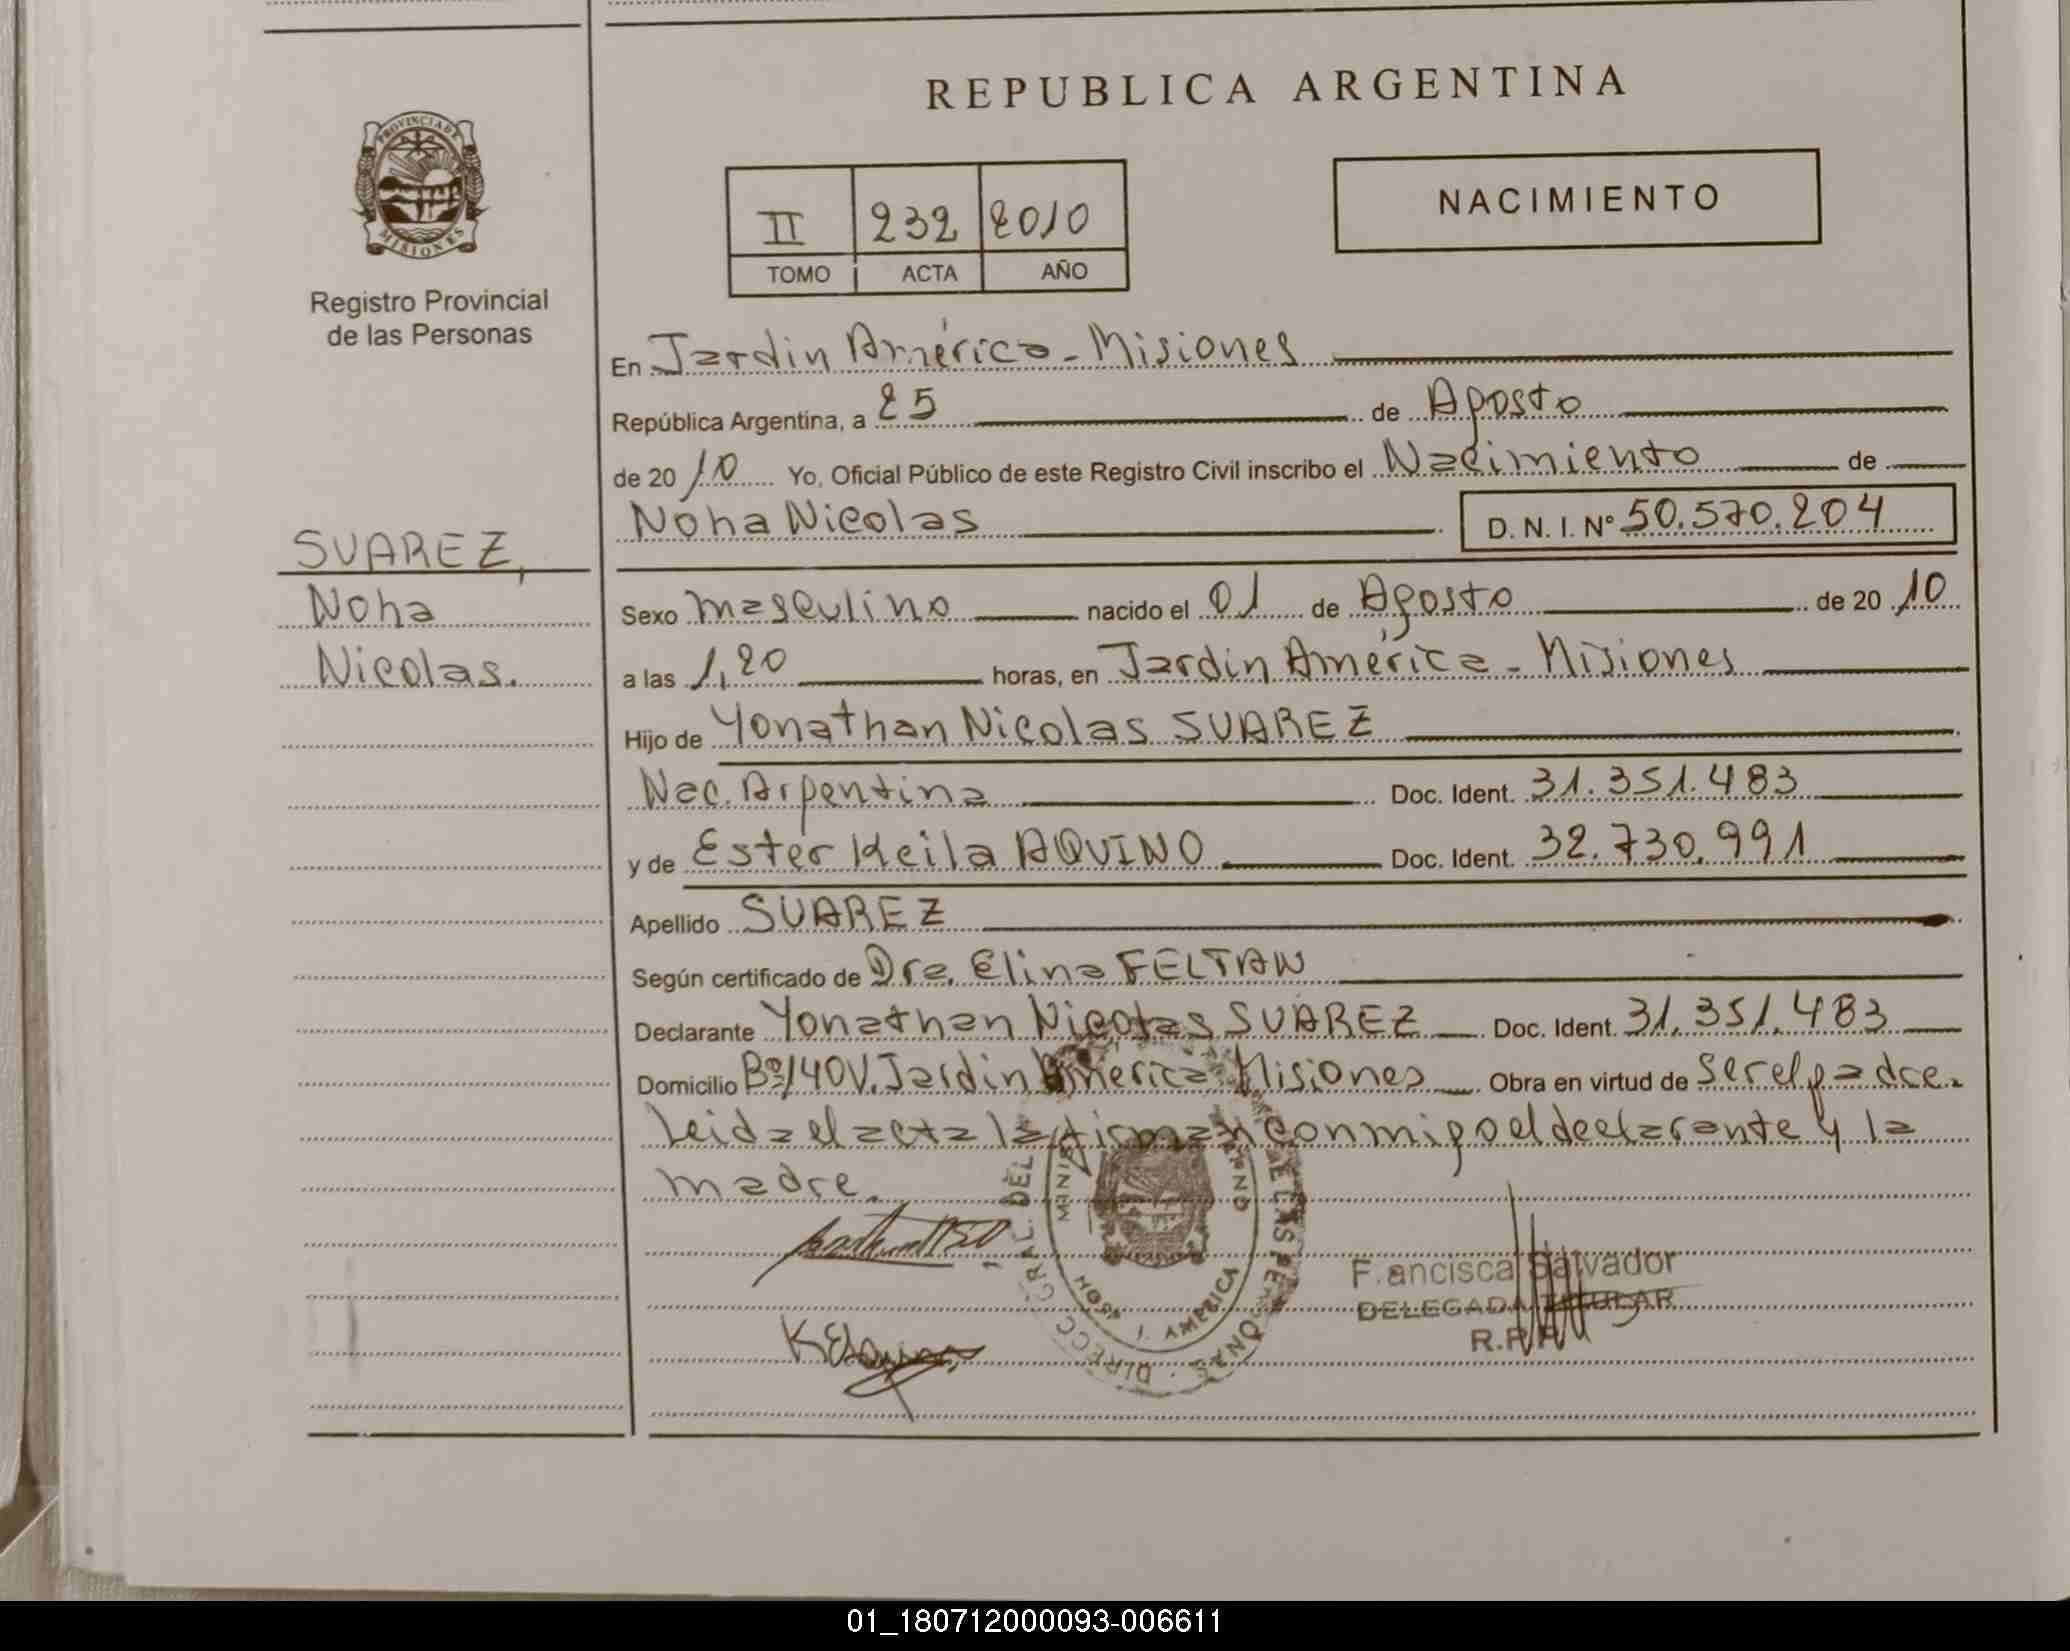 REPUBLICA ARGENTINA
PROVINCIA DE
MISIONES
Registro Provincial
de las Personas
II 232 2010
TOMO ACTA AÑO
NACIMIENTO
En Jardin América - Misiones
República Argentina, a 25 de Agosto
de 2010 Yo, Oficial Público de este Registro Civil inscribo el Nacimiento de
Noha Nicolas D. N. I. Nº 50.570.204
SUAREZ,
Noha
Nicolas.
Sexo masculino nacido el 01 de Agosto de 2010
a las 1,20 horas, en Jardin América - Misiones
Hijo de Yonathan Nicolas SUAREZ
Nac. Argentina Doc. Ident. 31.351.483
y de Ester Keila AQUINO Doc. Ident. 32.730.991
Apellido SUAREZ
Según certificado de Dra. Elina FELTAN
Declarante Yonathan Nicolas SUAREZ Doc. Ident. 31.351.483
Domicilio Bº 140V. Jardin América Misiones Obra en virtud de ser el padre.
Leida el acta la firman conmigo el declarante y la
madre.
DIRECC. GRAL. DEL DE LAS PERSONAS
J. AMERICA
F.ancisca Salvador
DELEGADA TITULAR
R.P.P
01_180712000093-006611